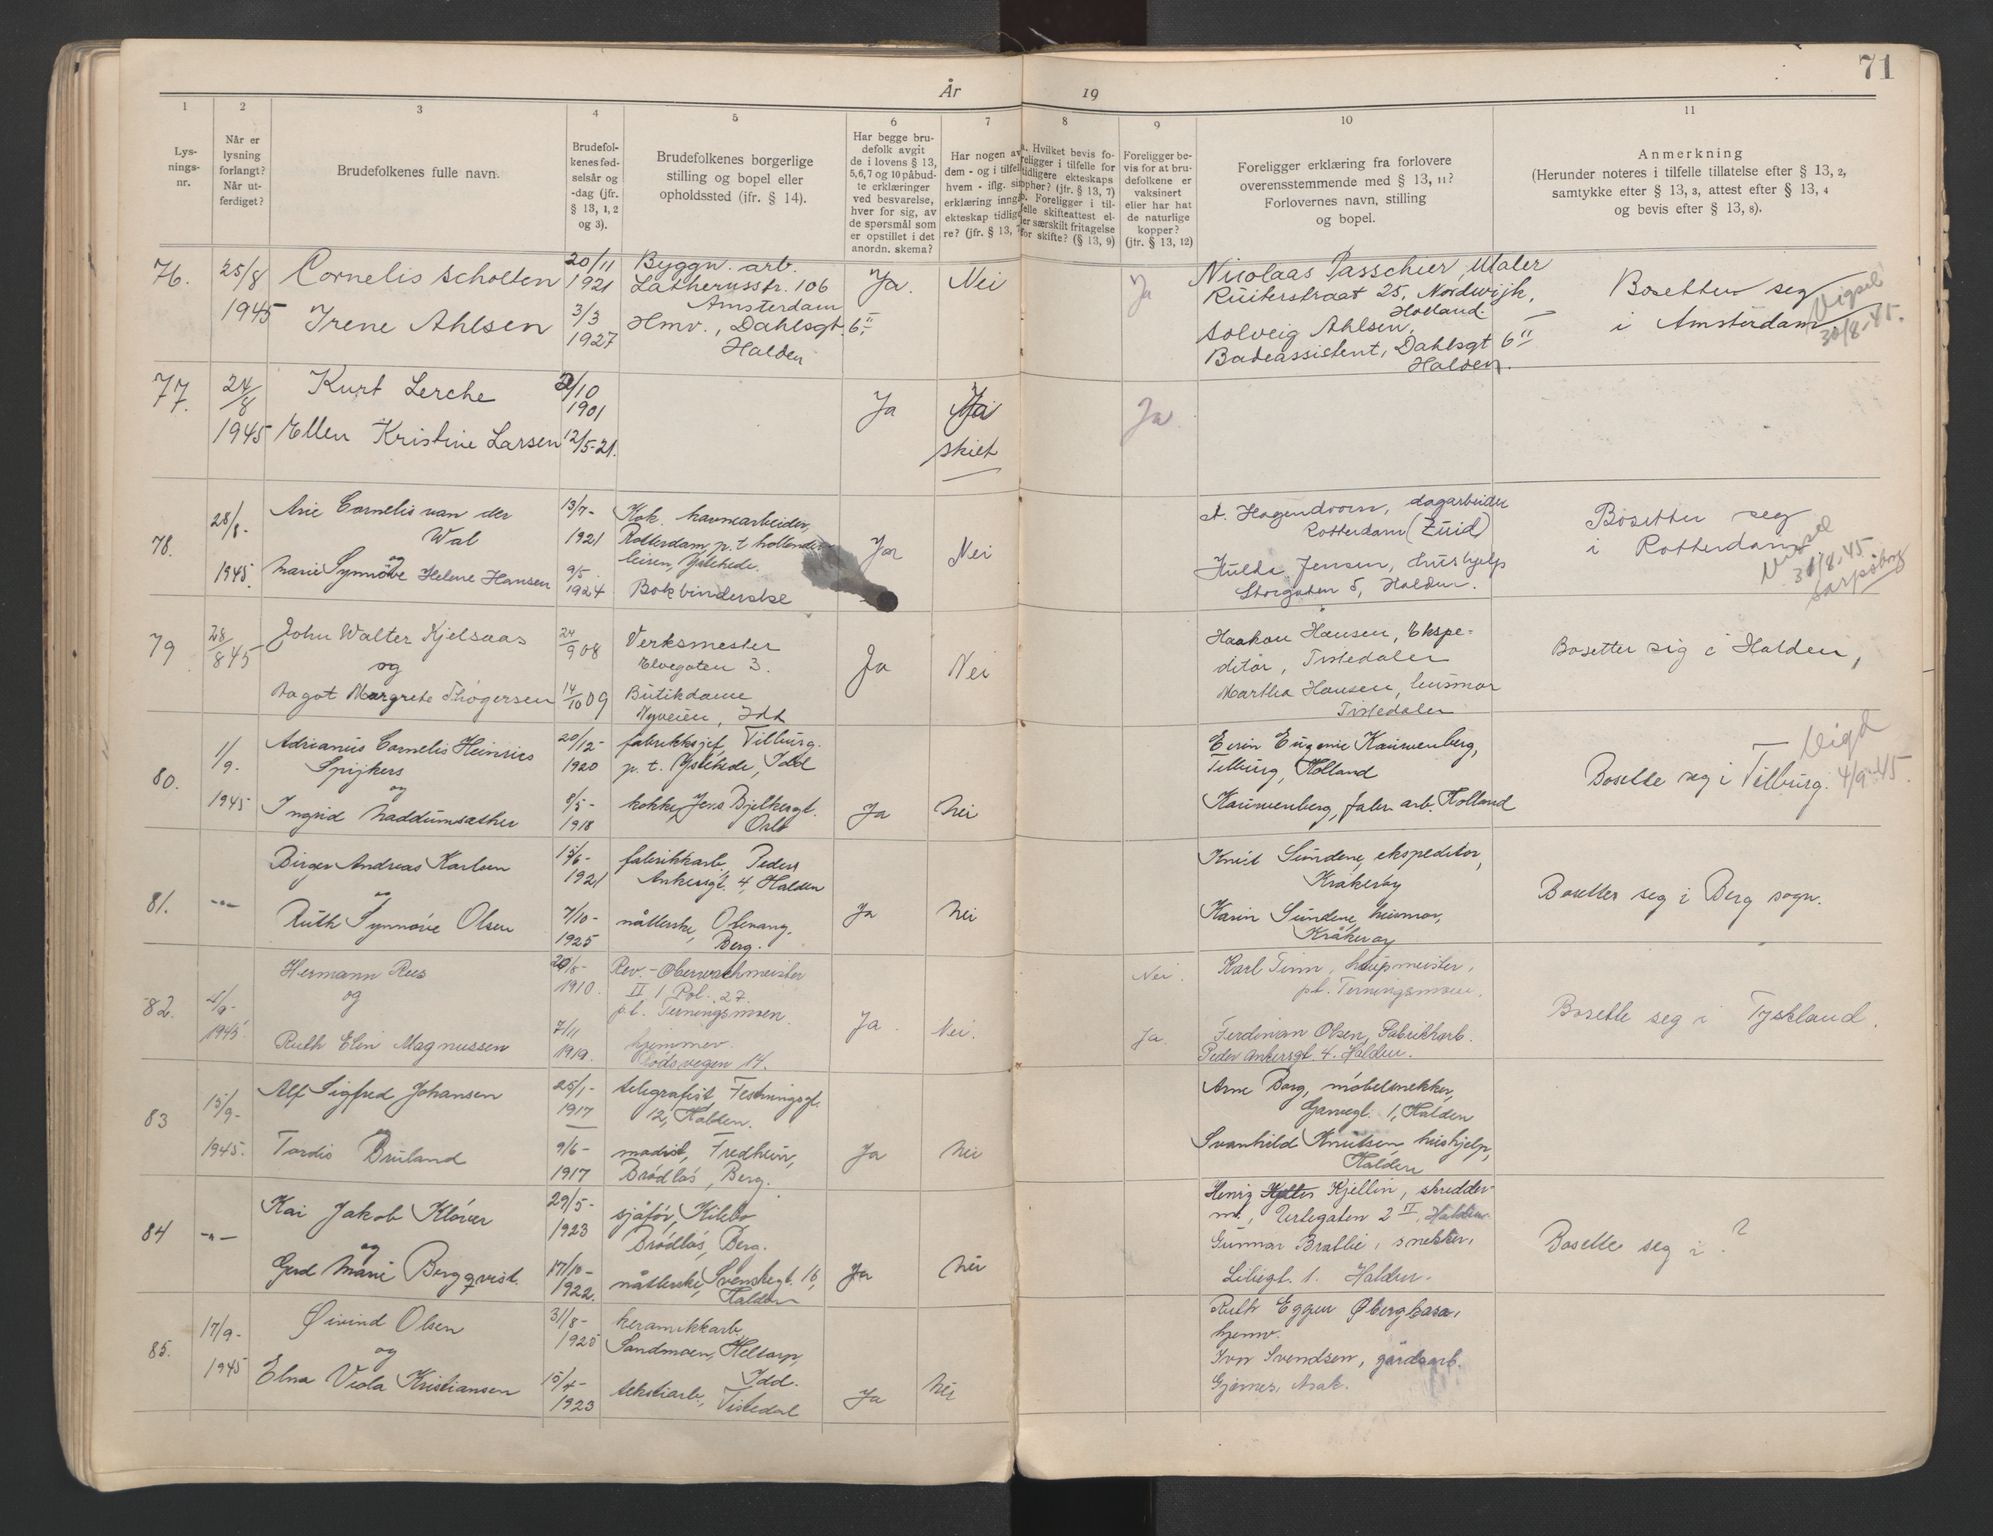 71
År 19
1 2 3 4 5 6 7 8 9 10 11
Lys-
nings-
nr.
Når er
lysning
forlangt?
Når ut-
ferdiget?
Brudefolkenes fulle navn.
Brudefol-
kenes fød-
selsår og
-dag (jfr.
§ 13, 1, 2
og 3).
Brudefolkenes borgerlige
stilling og bopel eller
opholdssted (jfr. § 14).
Har begge bru-
defolk avgit
de i lovens § 13,
5, 6, 7 og 10 påbud-
te erklæringer
ved besvarelse,
hver for sig, av
de spørsmål som
er opstillet i det
anordn. skema?
Har nogen av
dem - og i tilfell
hvem - iflg. sin
erklæring inng
ekteskap tidlig
re? (jfr. § 13,
a. Hvilket bevis fo-
religger i tilfelle for
tidligere ekteskaps
ophør? (jfr. § 13, 7)
b. Foreligger i til-
felle skifteattest el-
ler særskilt fritagelse
for skifte? (§ 13, 9)
Foreligger be-
vis for at bru-
defolkene er
vaksinert
eller har hat
de naturlige
kopper?
(jfr. § 13, 12)
Foreligger erklæring fra forlovere
overensstemmende med § 13, 11?
Forlovernes navn, stilling
og bopel.
Anmerkning
(Herunder noteres i tilfelle tillatelse efter § 13, 2,
samtykke efter § 13, 3, attest efter § 13, 4
og bevis efter § 13, 8).
76. 25/8 1945
Cornelis Scholten
Irene Ahlsen
20/11
1921
3/3
1927
Byggn. arb.
Latherusstr. 106
Amsterdam
Hmv., Dahlsgt. 6 II
Halden
Ja. Nei Ja
Nicolaas Passchier, Maler
Ruiterstraat 25, Nordwijk,
Holland.
Solveig Ahlsen,
Badeassistent, Dahlsgt 6 II
Halden.
Bosetter seg
i Amsterdam
Vigsel
30/8-45.
77. 24/8 1945
Kurt Lerche
Ellen Kristine Larsen
/10
1901
12/5-21.
Ja Ja
skilt
Ja.
78. 28/8- 1945.
Arie Cornelis van der
Wal
og
Marie Synnøve Helene Hansen
13/7-
1921
9/5
1924
Kok. havnearbeider,
Rotterdam, p. t. hollender-
leiren, Ystehede.
Bokbinderske
Ja Nei
A. Hogendoorn, dagarbeider
Rotterdam (Zuid)
Hulda Jensen, Hushjelp
Storgaten 5, Halden.
Bosetter seg
i Rotterdam
Vigsel
31/8.45
Sarpsborg
79 28/8 45
John Walter Kjelsaas
og
Dagot Margrete Thøgersen
24/9 08
14/10 09
Verksmester
Elvegaten 3.
Butikdame
Nyveien, Idd
Ja Nei
Haakon Hansen, Ekspe-
ditør, Tistedalen
Martha Hansen, husmor
Tistedalen
Bosetter sig i Halden,
80. 1/9. 1945
Adrianus Cornelis Heinries
Spijkers
og
Ingrid Naddumsæther
20/12-
1920
8/5-
1918
fabrikksjef, Tilburg.
p. t. Ystehede, Idd
kokke, Jens Bjelkesgt.
Oslo
Ja Nei
Eerin Eugenie Kauwenberg,
Tilburg, Holland
Kauwenberg, fabr. arb. Holland
Bosette seg i Tilburg.
Vigd
4/9-45.
81. -"-
Birger Andreas Karlsen
og
Ruth Synnøve Olsen
15/6-
1921
7/10-
1925
fabrikkarb. Peders
Ankersgt. 4, Halden
nåtlerske,
Berg.
Ja Nei
Knut Sundene, ekspeditør,
Kråkerøy
Karin Sundene, husmor,
Kråkerøy
Bosetter seg i Berg sogn.
82. 4/9- 1945
Hermann Rees
og
Ruth Elin Magnussen
20/8-
1910.
7/11
1919.
Rev. - Oberwachmeister
II / Pol. 27.
p.t. Terningsmoen
hjemmev.
Rødsvegen 14.
Ja Nei.
Nei.
Ja.
Karl Timm, haupmeister,
p.t. Terningsmoen.
Ferdinan Olsen, Fabrikkarb.
Peder Ankersgt. 4. Halden.
Bosette seg i Tyskland.
83 15/9- 1945.
Alf Sigfred Johansen
Tordis Bruland
25/1-
1917
9/6-
1917
telegrafist, Festningsgt.
12, Halden.
modist, Fredheim,
Brødløs, Berg.
Ja Nei
Arne Borg, møbelsnekker,
Garvegt. 1, Halden
Svanhild Knutsen hushjelp,
Halden
84 -"-
Kai Jakob Kløver
og
Gerd Marie Bergqvist.
29/5-
1923
17/10-
1922.
sjåfør, Kilebo
Brødløs, Berg.
nåtlerske, Svenskegt. 16,
Halden
Ja Nei
Henry Kjellin, skredder-
m., Urtegaten 2 IV, Halden
Gunnar Bratlie, snekker,
Liliegt. 1. Halden.
Bosette seg i ?
85. 17/9- 1945
Øivind Olsen
og
Elna Viola Kristiansen
31/8-
1925
15/4-
1923
keramikkarb.
Sandmoen, Heltorp,
Idd.
tekstiarb., Tistedal
Ja Nei
Ruth Eggen Øberghasa,
hjemv.
Ivn Svendsen, gårdsarb.
Gjørnes, Asak.